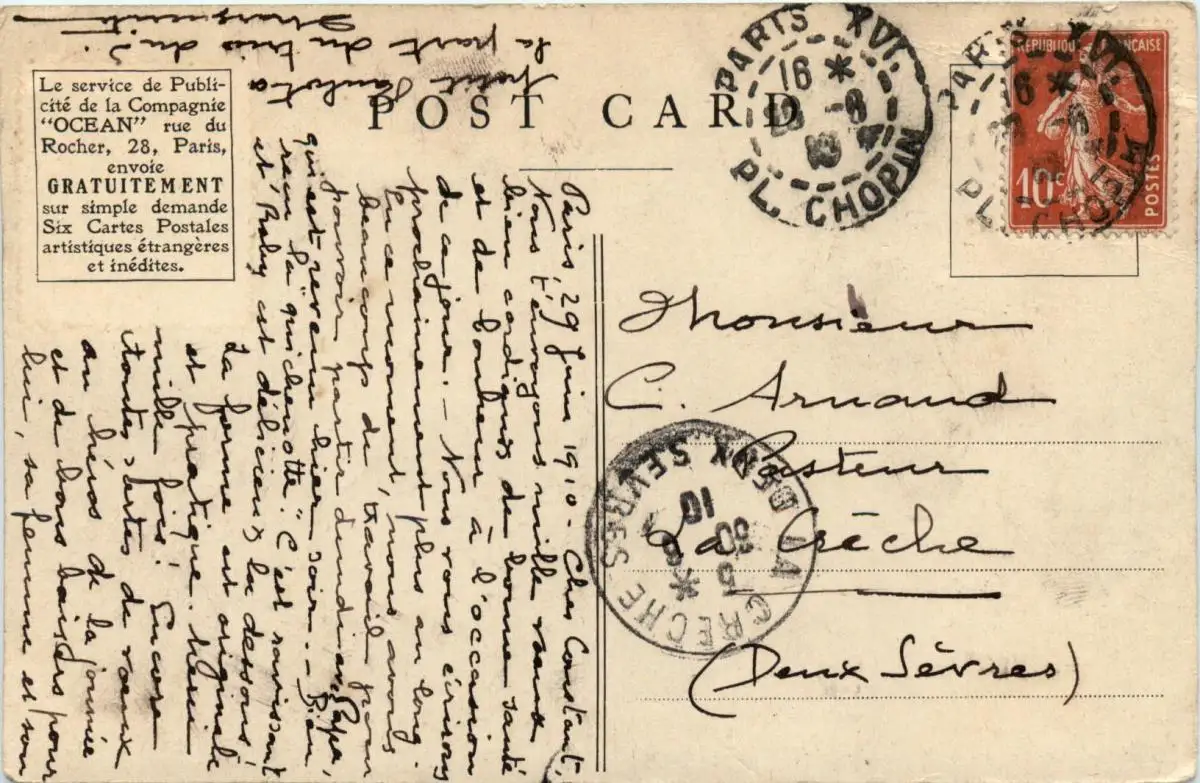 Le service de Publi-
cité de la Compagnie
"OCEAN" rue du
Rocher, 28, Paris,
envoie
GRATUITEMENT
sur simple demande
Six Cartes Postales
artistiques étrangères
et inédites.
POST CARD
PARIS XVI.
16 *
PL. CHOPIN
RÉPUBLIQUE FRANÇAISE
10c
POSTES
PARIS XVI.
16 *
PL. CHOPIN
Monsieur
C. Arnaud
Pasteur
La Crèche
(Deux Sèvres)
LA CRECHE
DEUX SEVRES
5 *
30
10
Paris, 29 Juin 1910 - Cher Constant,
Nous t'envoyons mille vœux
bien cordiaux de bonne santé
et de bonheur à l'occasion
de ce jour. - Nous vous écrirons
prochainement plus au long.
En ce moment, nous avons
beaucoup de travail pour
pouvoir partir lundi avec Papa,
qui est revenu hier soir. - Bien
reçu la "quichenotte". C'est ravissant
et Baby est délicieux là dessous!
La forme est originale
et pratique. Merci
mille fois! Encore
toutes sortes de vœux
au héros de la journée
et de bons baisers pour
lui, sa femme et son
petit
la part du trio du